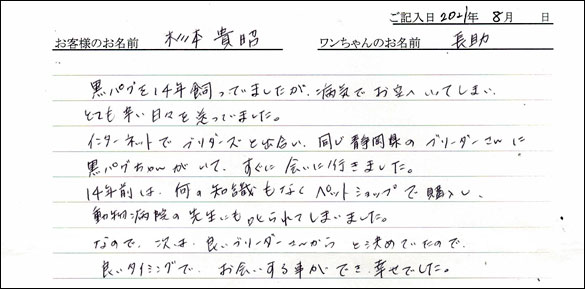 ご記入日 2021年 8月 日
お客様のお名前 杉本 貴昭 ワンちゃんのお名前 長助
黒パグを14年飼っていましたが、病気でお空へいってしまい、
とても辛い日々を送っていました。
インターネットでブリーダーズと出会い、同じ静岡県のブリーダーさんに
黒パグちゃんがいて、すぐに会いに行きました。
14年前は、何の知識もなくペットショップで購入し、
動物病院の先生にも叱られてしまいました。
なので、次は、良いブリーダーさんからと決めていたので、
良いタイミングで、お会いする事ができ、幸せでした。